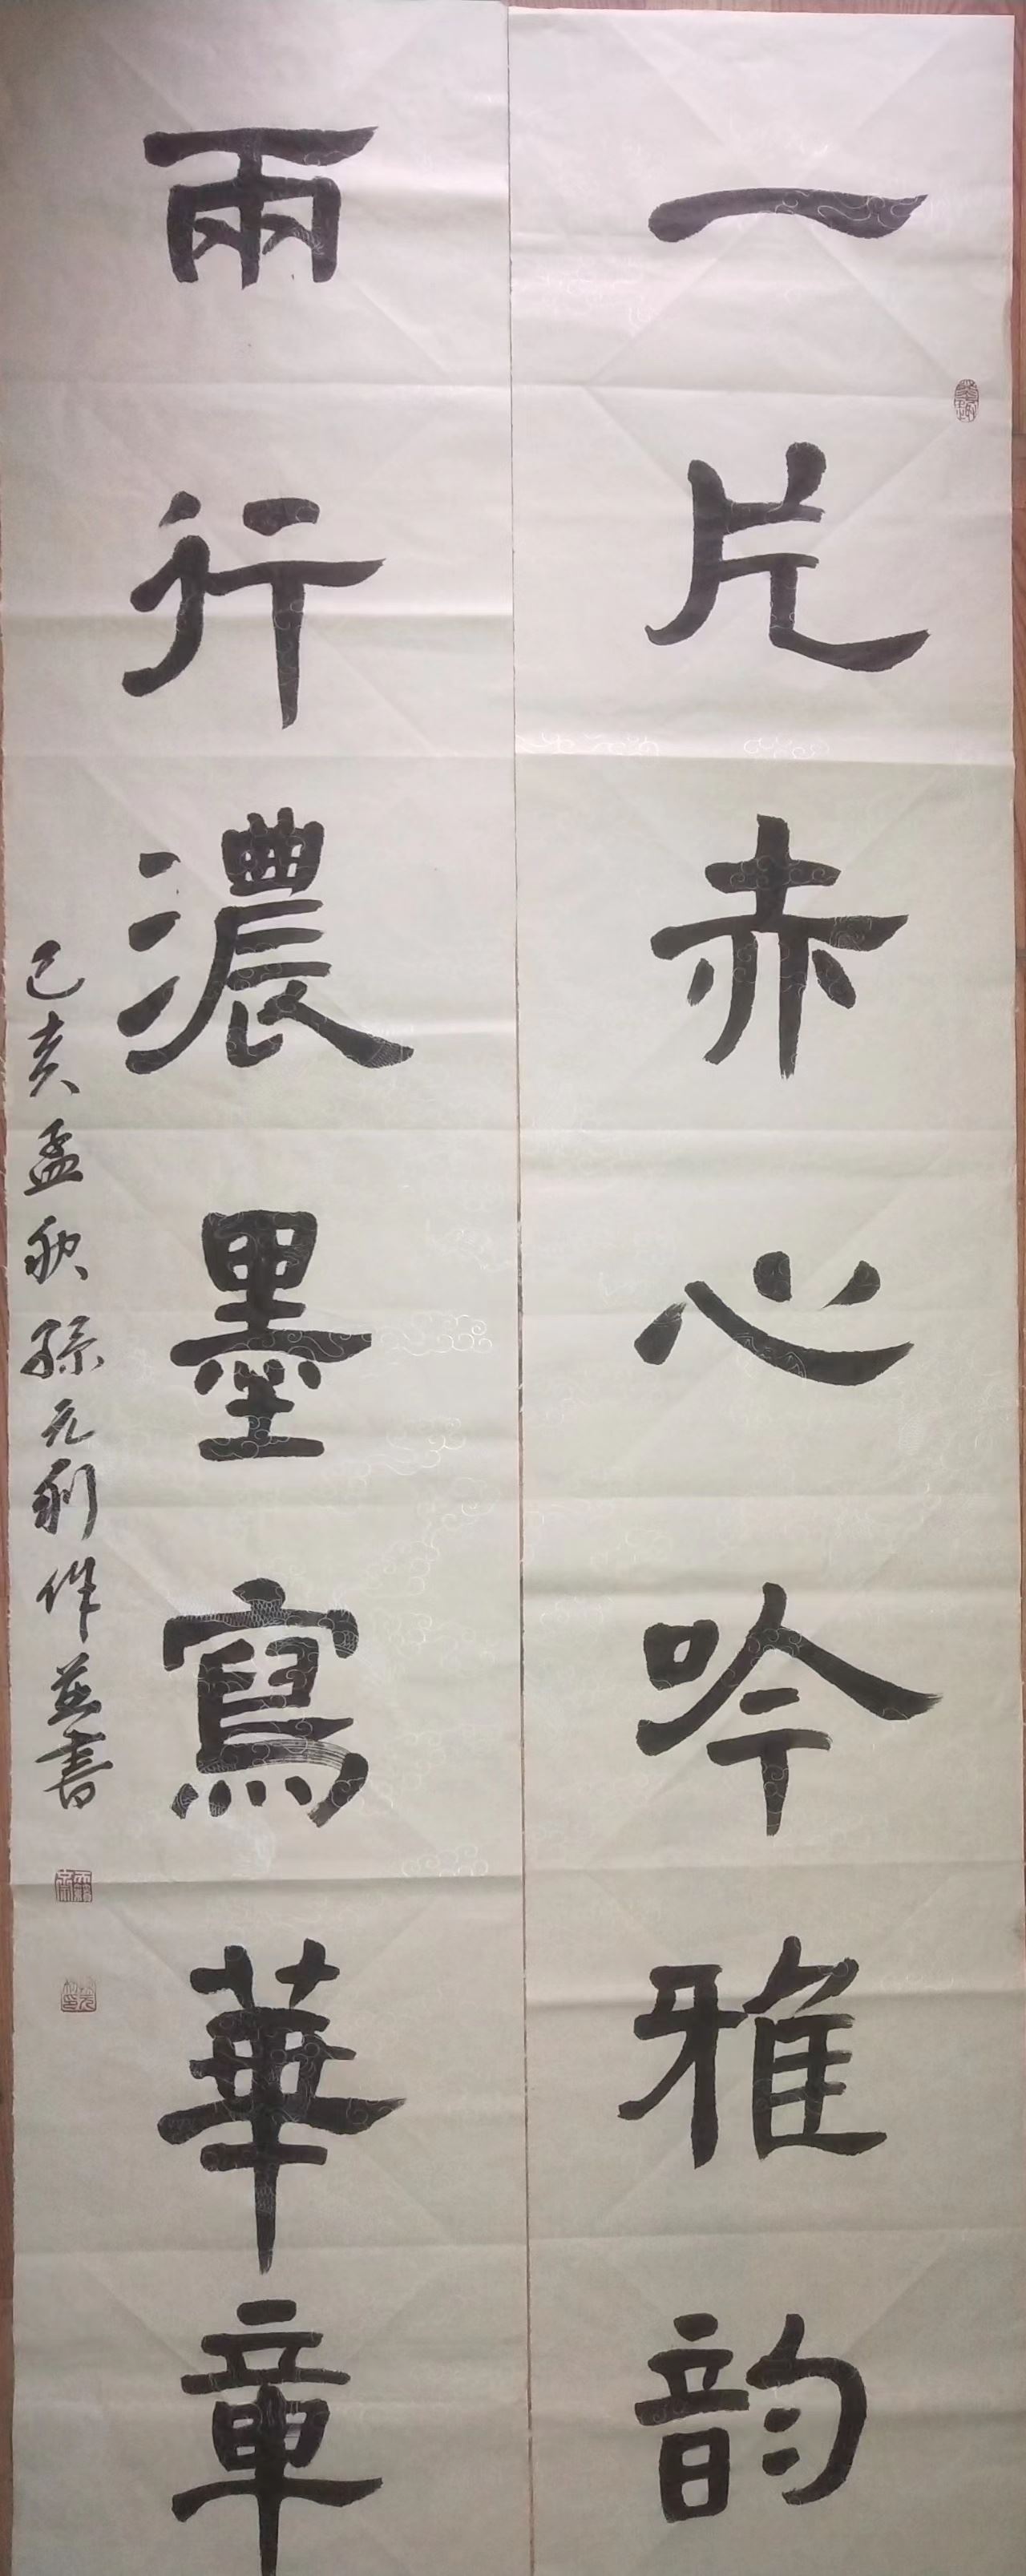 一片赤心吟雅韵
兩行濃墨寫華章
己亥孟秋孫元利作並書